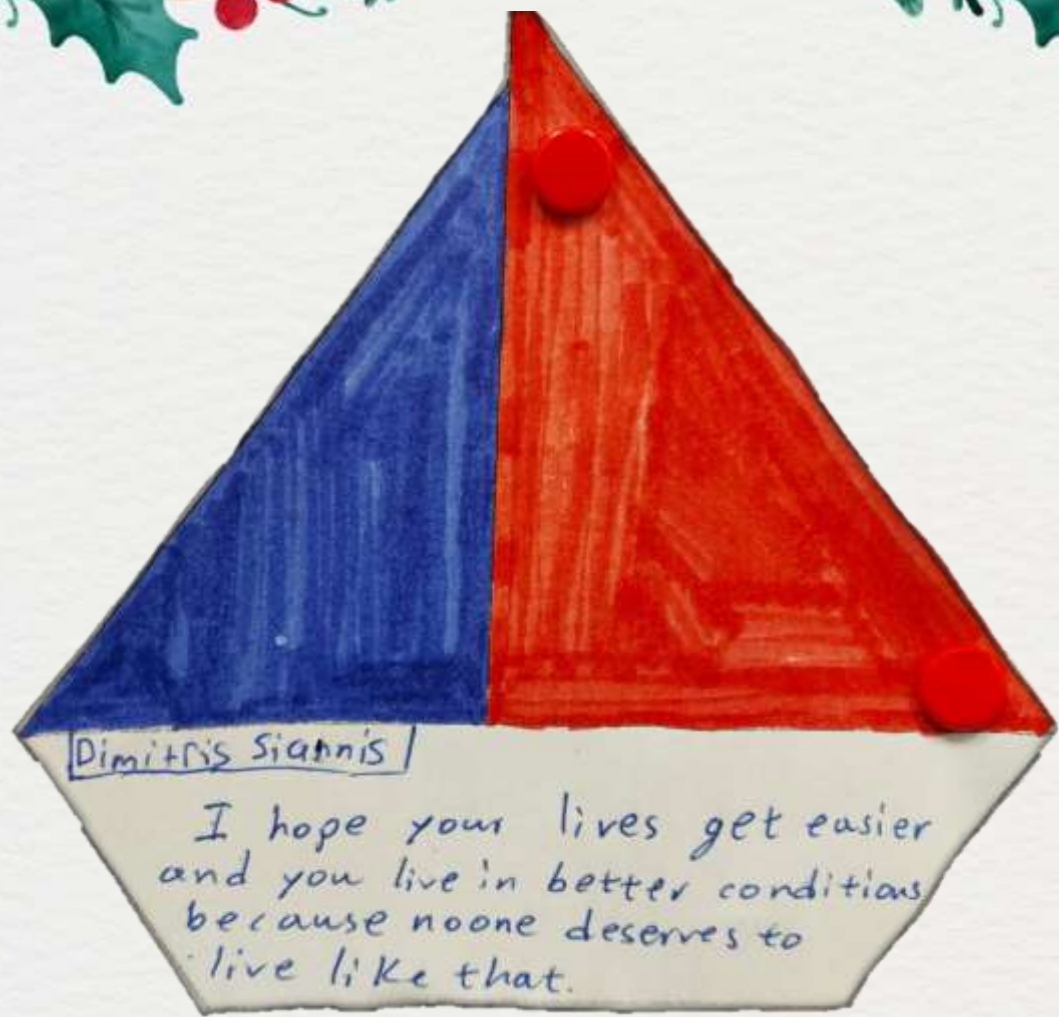 Dimitris Siannis
I hope your lives get easier
and you live in better conditions
because noone deserves to
live like that.